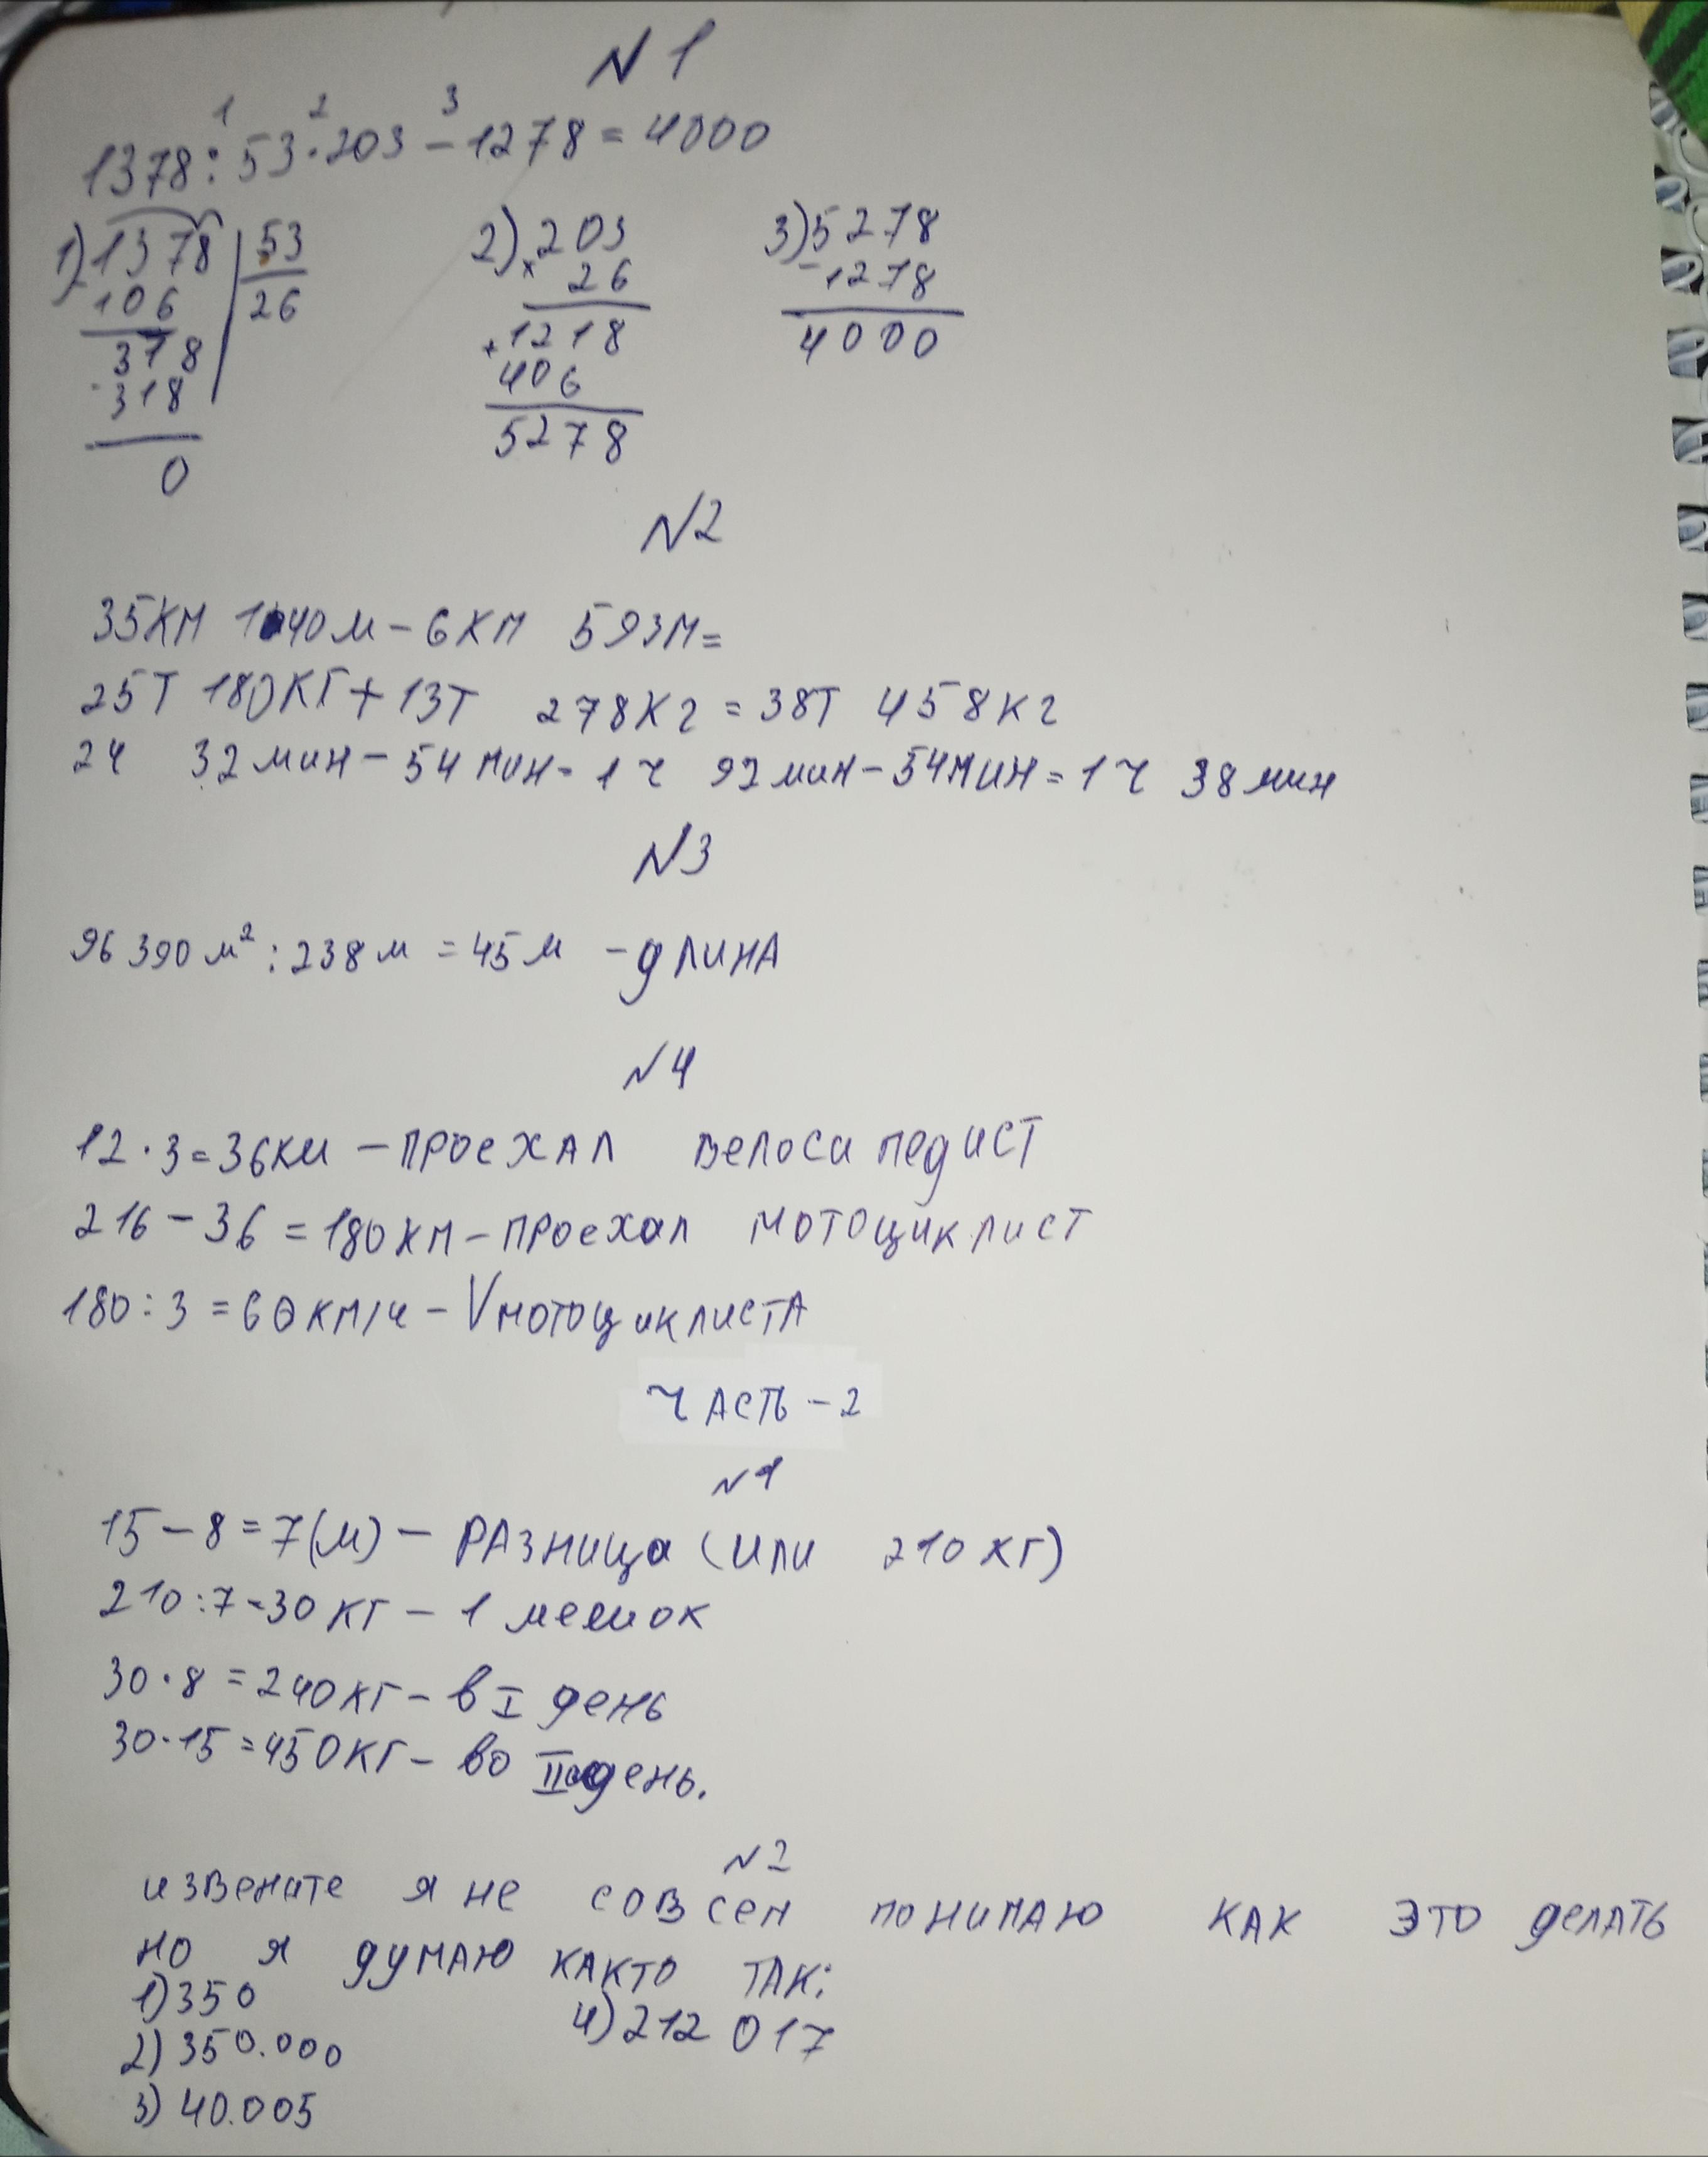 N 1
1 2 3
1378 : 53 · 203 - 1278 = 4000
1) 1378 | 53 2) 203 3) 5278
106 26 × 26 - 1278
378 + 1218 4000
- 318 406
0 5278
N2
35КМ 1040м - 6КМ 593М=
25Т 180КГ + 13Т 278Кг = 38Т 458кг
2ч 32мин - 54мин = 1ч 92мин - 54мин = 1ч 38мин
N3
96390м² : 238м = 45м - длинА
N4
12 · 3 = 36км - ПРОЕХАЛ велосипедист
216 - 36 = 180км - проехал мотоциклист
180 : 3 = 60км/ч - V мотоциклистА
ЧАСТЬ - 2
N1
15 - 8 = 7(м) - РАЗница (или 210кг)
210 : 7 = 30кг - 1 мешок
30 · 8 = 240кг - в I день
30 · 15 = 450кг - во II день.
N2
извените я не совсем понимаю как это делать
но я думаю както так:
1) 350 4) 212 017
2) 350.000
3) 40.005